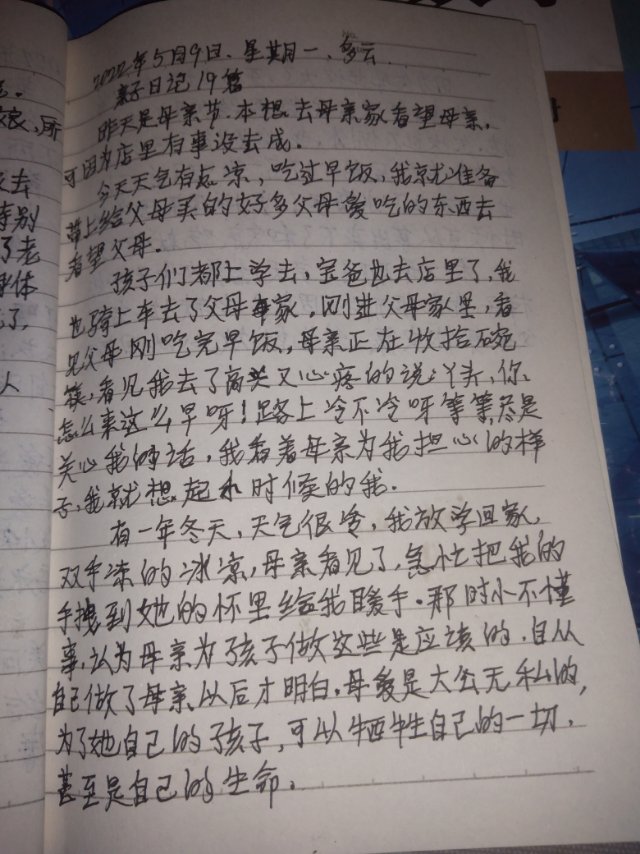 2022年5月9日、星期一、多云
亲子日记19篇
昨天是母亲节.本想去母亲家看望母亲,
可因为店里有事没去成.
今天天气有点凉,吃过早饭,我就准备
带上给父母买的好多父母爱吃的东西去
看望父母.
孩子们都上学去,宝爸也去店里了,我
也骑上车去了父母家,刚进父母家里,看
见父母刚吃完早饭,母亲正在收拾碗
筷,看见我去了高兴又心疼的说:丫头,你
怎么来这么早呀!路上冷不冷呀等等尽是
关心我的话,我看着母亲为我担心的样
子,我就想起小时候的我.
有一年冬天,天气很冷,我放学回家,
双手冻的冰凉,母亲看见了,急忙把我的
手拽到她的怀里给我暖手.那时小不懂
事,认为母亲为孩子做这些是应该的,自从
自己做了母亲以后才明白.母爱是大公无私的,
为了她自己的孩子,可以牺牲自己的一切,
甚至是自己的生命.
良,所
去
特别
了老
身体
了,
人